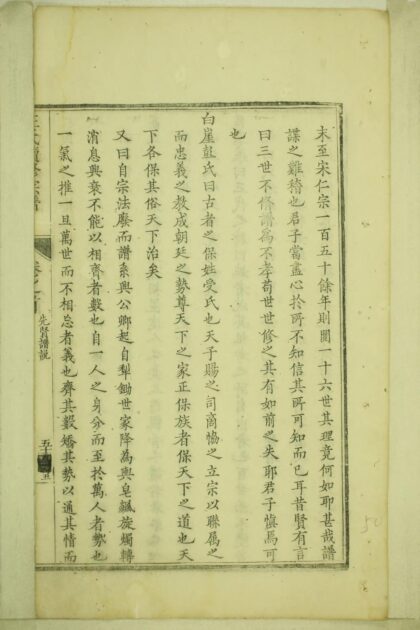 末至宋仁宗一百五十餘年則闕一十六世其理竟何如耶甚哉譜
諜之難稽也君子當盡心於所不知信其所可知而已耳昔賢有言
曰三世不修譜為不孝苟世世修之其有如前之失耶君子慎焉可
也
白崖彭氏曰古者之保姓受氏也天子賜之司商協之立宗以聯屬之
而忠義之教成朝廷之勢尊天下之家正保族者保天下之道也天
下各保其俗天下治矣
又曰自宗法廢而譜系興公卿起自犁鋤世家降為輿皂飜旋觸轉
消息興衰不能以相齊者數也自一人之身分而至於萬人者勢也
一氣之推一旦萬世而不相忘者義也齊其數矯其勢以通其情而
先賢譜說
五十